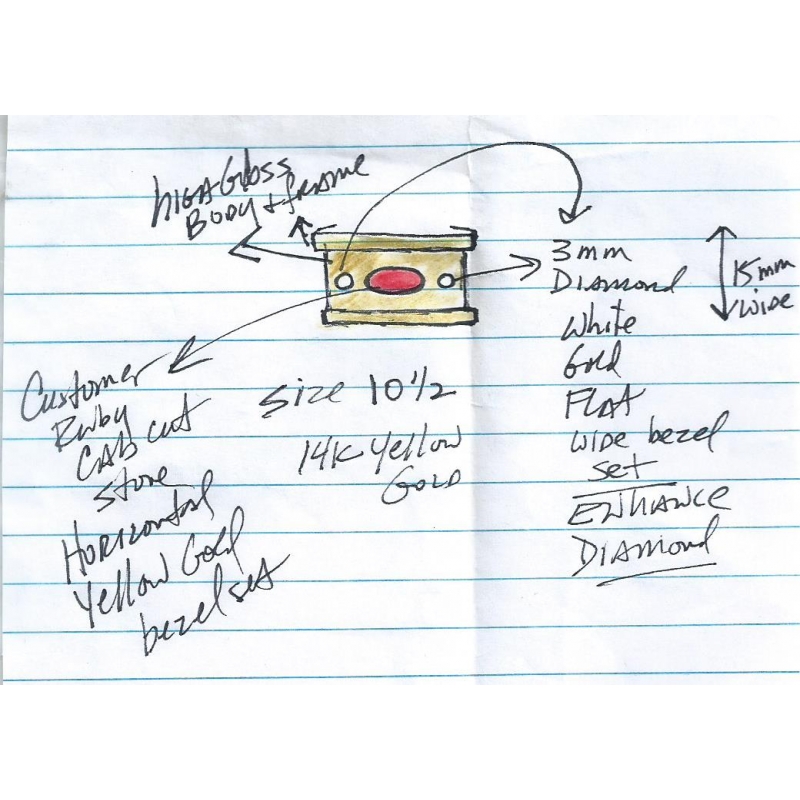 HIGH Gloss
BODY + frame
3mm
DIAMOND
White
Gold
FLAT
WIDE bezel
set
ENHANCE
DIAMOND
15mm
WIDE
Customer
Ruby
CAB cut
Stone
HORIZONTAL
Yellow Gold
bezel set
Size 10 1/2
14K Yellow
GOLD